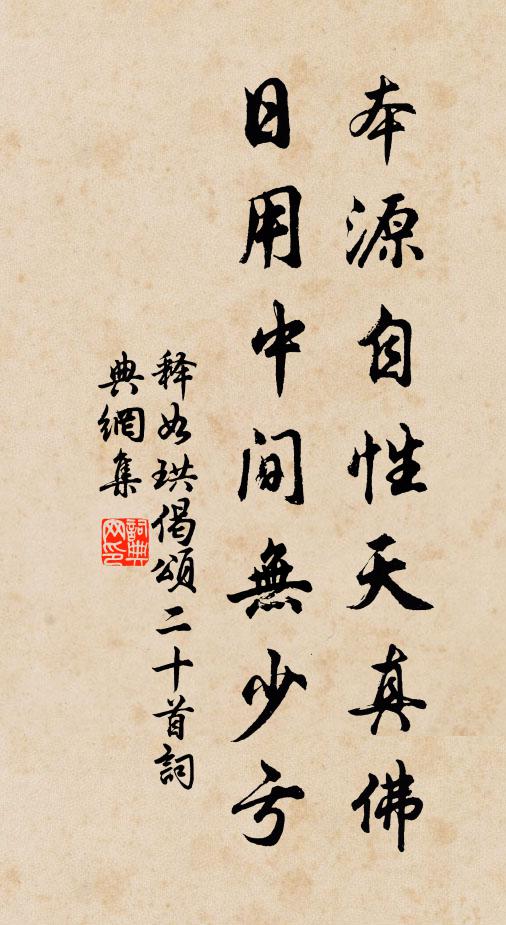 本源自性天真佛
日用中间無少亏
释如珙偈頌二十首詞
典網集
詞典
网印